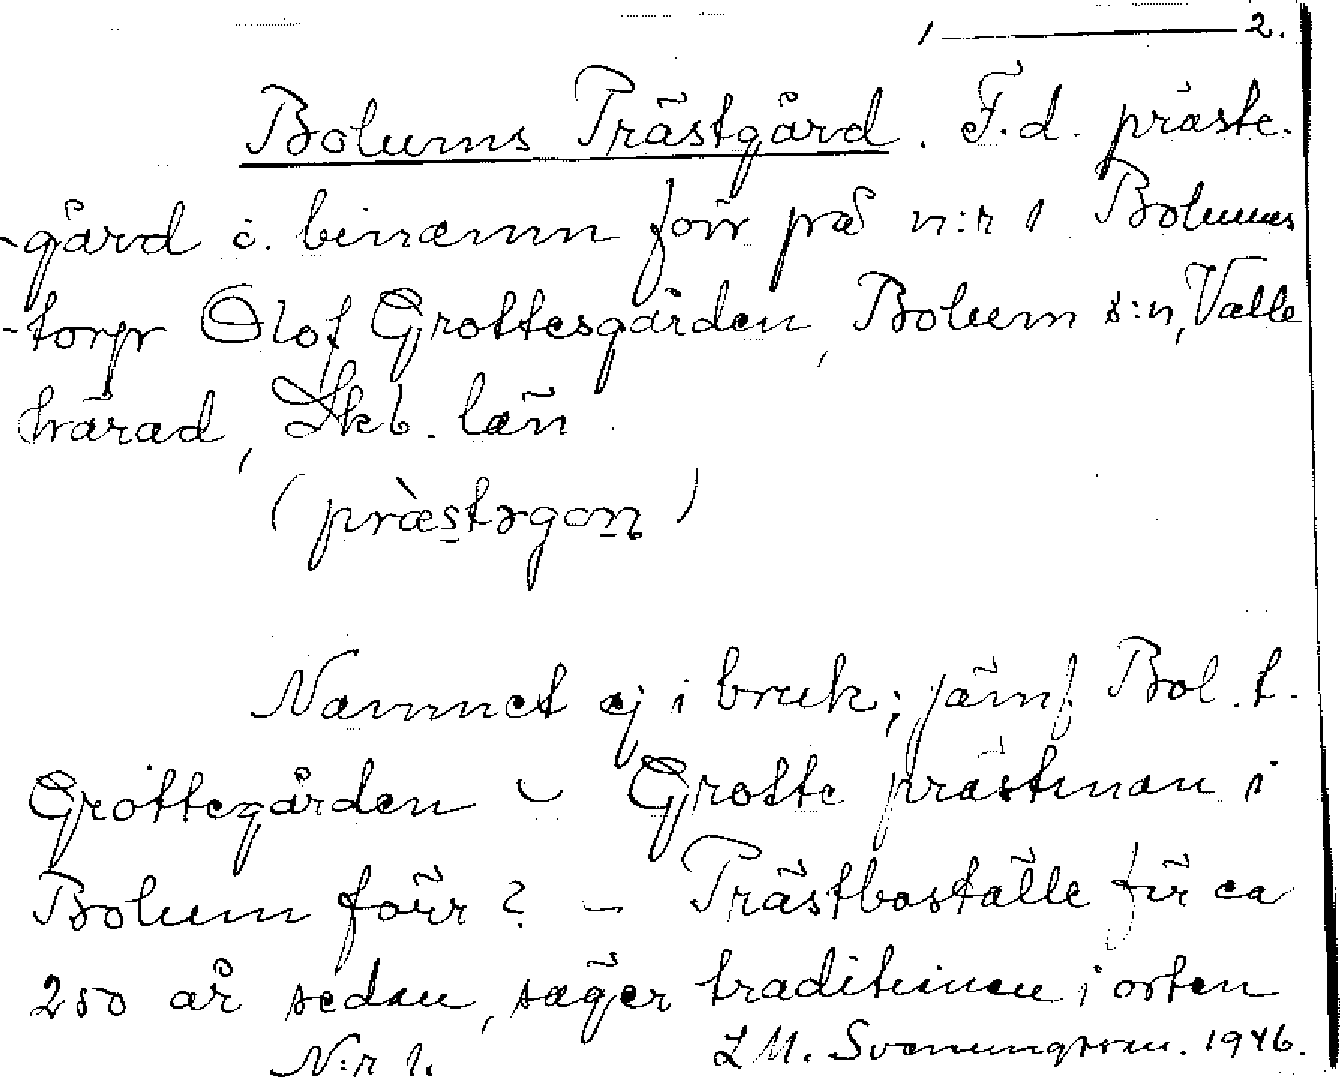 1 ——— 2.
Bolums Prästgård. F.d. präste-
-gård o. binamn förr på n:r 1 Bolums
-torp Olof Grottesgården, Bolum s:n, Valle
härad, Skb. län.
(præstəgɑn)
Namnet ej i bruk; jämf Bol. t.
Grottegården – Grotte prästman i
Bolum förr? – Prästboställe för ca
250 år sedan, säger traditionen i orten
N:r 1. L M. Svenungsson. 1946.